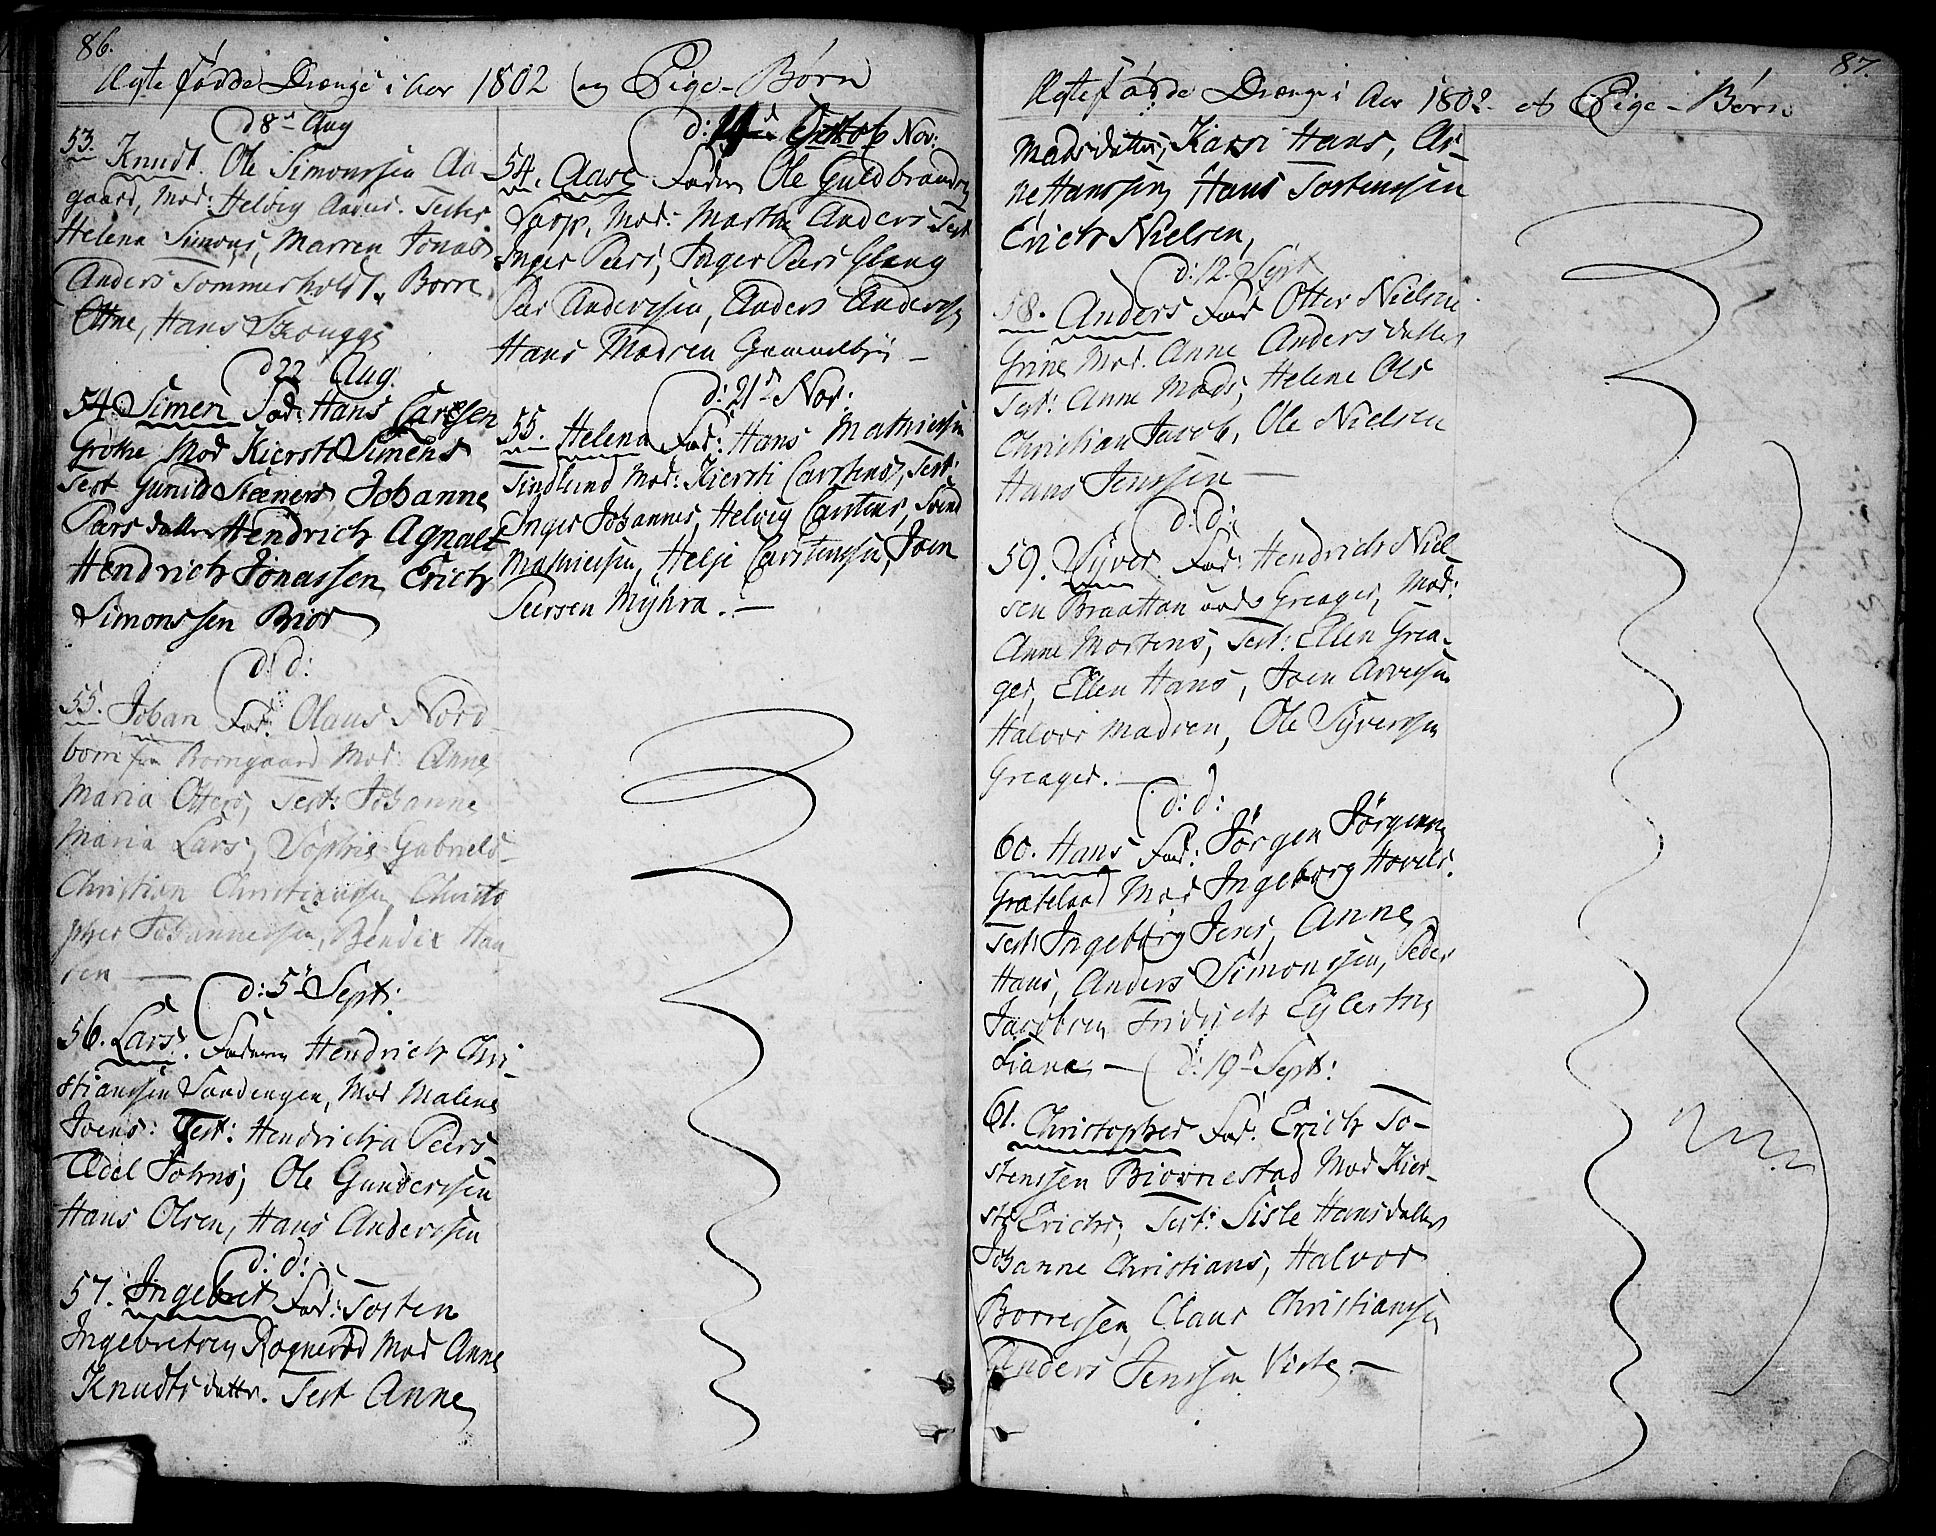 86.
Ægte fødde Drenge i Aar 1802 og Pige-Børn
d 8de Aug
53. Knudt. Ole Simonssen Aa-
gaard, Mod: Helvig Anders. Test:
Helena Simons, Marren Jonas
Anders Sommerholdt, Borre
Ottne, Hans Skougge
d 22 Aug:
54. Simen Fad: Hans Carlsen
Grothe Mod Kiersti Simens
Test Gunild Steners, Johanne
Pärs datter Hendrich Agnalt
Hendrich Jonassen, Erich
Simonssen Biør
d: d:
55. Johan Fad: Olaus Nord-
bom fra Borngaard Mod: Anne
Maria Otters, Test: Johanne
Maria Lars, Sophie Gabriels-
Christian Christianssen, Christo
pher Johannessen, Bendix Han
sen —
d: 5te Sept:
56. Lars. Faderen Hendrich Chri-
stianssen Sandengen, Mod Malene
Joens: Test: Hendricha Peers-
Edel Johns, Ole Gunderssen
Hans Olsen, Hans Anderssen
d: d:
57. Ingebret Fad: Tosten
Ingebretsen Rognerød Mod Anne
Knudts datter. Test Anne
Nov:
54. Aase Faderen Ole Guldbrandsen
Torp, Mod: Marthe Anders- Test
Inger Peers, Inger Peers Glang
Peer Anderssen, Anders Anderssen
Hans Madsen Gammelbye —
d: 21de Nov:
55. Helena Fad: Hans Mathiessen
Tindlund Mod: Kiersti Carstens, Test:
Inger Johannes, Helvig Carstens, Svend
Mathiessen, Helje Carstenssen, Joen
Peersen Myhra. —
87.
Ægte fødde Drenge i Aar 1802. et Pige-Børn
Madsdatter, Karri Hans, Ar-
ne Hanssen, Hans Tostenssen
Erich Nielsen,
d: 12. Sept
58. Anders Fad Otter Nielsen
Grine Mod. Anne Andersdatter
Test: Anne Mads, Helene Ols
Christian Jacob, Ole Nielsen
Hans Jenssen —
d: d:
59. Syver Fad: Hendrich Niel-
sen Braattan Greager, Mod:
Anne Mortens, Test: Ellen Grea-
ger, Ellen Hans, Joen Arvessen
Halvor Madsen, Ole Syverssen
Greager. —
d: d:
60. Hans Fad: Jörgen Jörgensen
Grateland Mod Ingeborg Hovels.
Test Ingeborg Jens, Anne
Hans, Anders Simonssen, Peder
Jacobsen Fridrich
— d: 19de Sept:
61. Christopher Fad: Erich To-
stenssen Biørnestad Mod Kier-
sti Erichs, Test: Sisle Hansdatter
Johanne Christians, Halvor
Borressen, Claus Christianssen
Anders Jenssen Viste. —